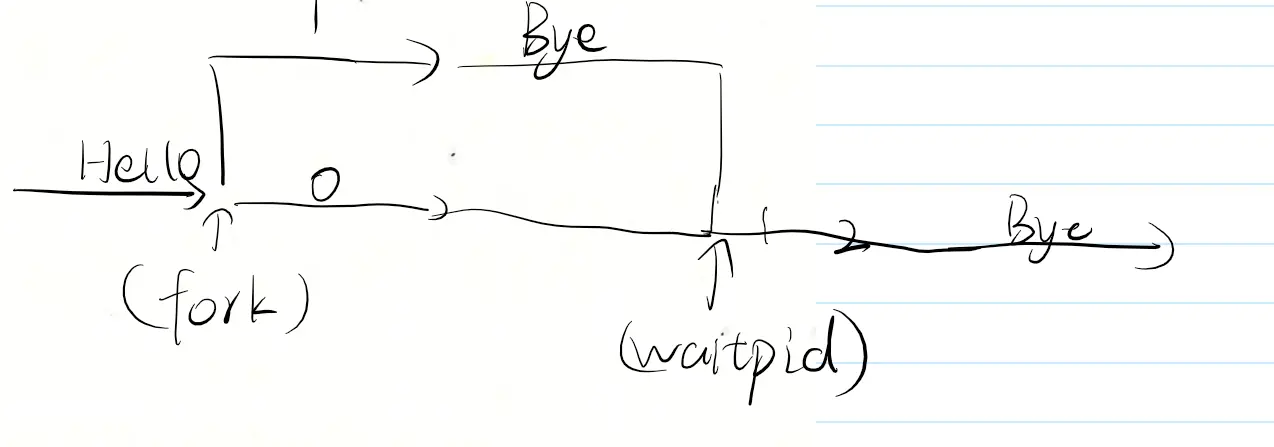 1
Bye
Hello
0
1
2
Bye
(fork)
(waitpid)